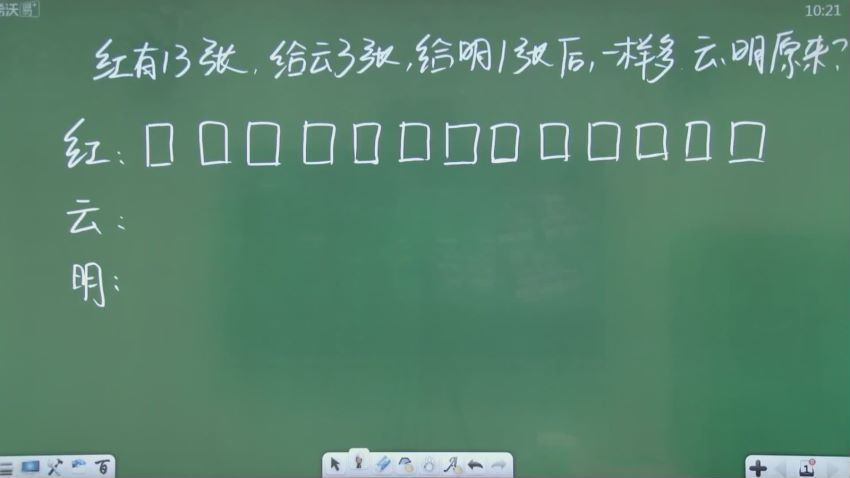 希沃
10:21
红有13张,给云3张,给明1张后,一样多.云、明原来?
红:
云:
明:
百
1